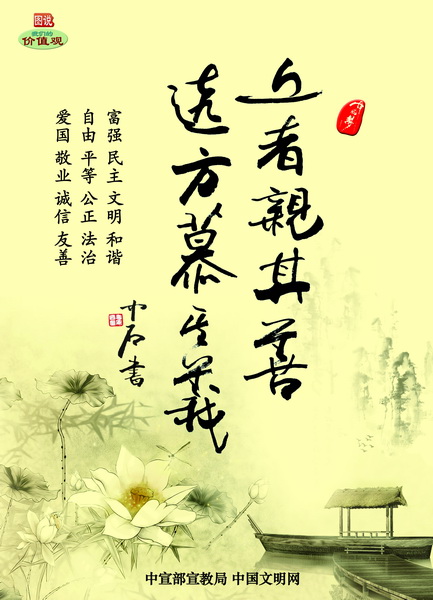 图说
我们的
价值观
近者親其善
遠方慕其義
中石書
富强 民主 文明 和谐
自由 平等 公正 法治
爱国 敬业 诚信 友善
中宣部宣教局 中国文明网